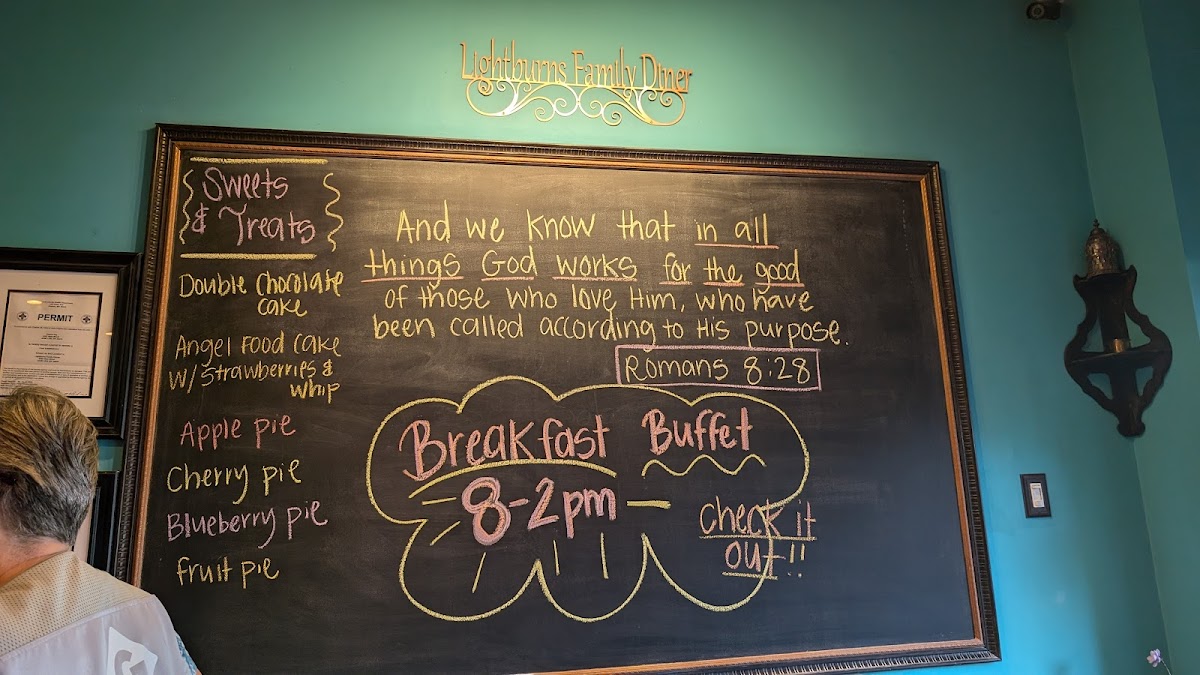 Lightburns Family Diner
Sweets
& Treats
Double Chocolate
cake
Angel Food Cake
W/Strawberries &
Whip
Apple pie
Cherry pie
Blueberry pie
fruit pie
And we know that in all
things God works for the good
of those who love Him, who have
been called according to His purpose.
Romans 8:28
Breakfast Buffet
8-2pm
check it
out!!
PERMIT